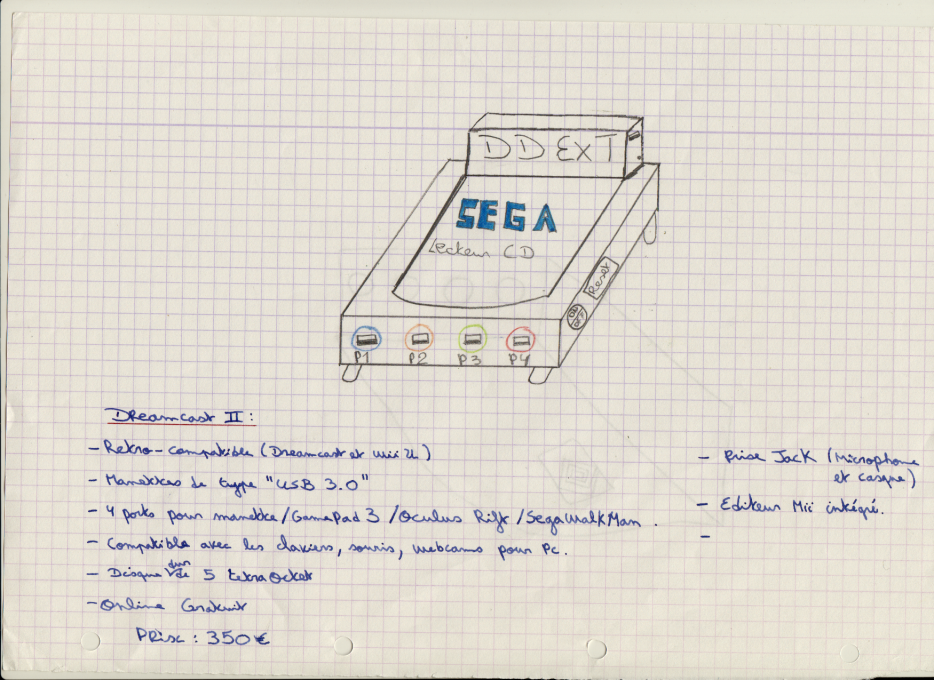 DD EXT
SEGA
Lecteur CD
Reset
ON
OFF
P1 P2 P3 P4
Dreamcast II :
- Retro-compatible (Dreamcast et wii U)
- Manettes de type "USB 3.0"
- 4 ports pour manette/GamePad 3 /Oculus Rift /SegaWalkMan.
- Compatible avec les claviers, souris, webcams pour Pc.
- Disque dur de 5 tetraoctet
- Online Gratuit
Prix : 350€
- Prise Jack (Microphone
et casque)
- Editeur Mii intégré.
-